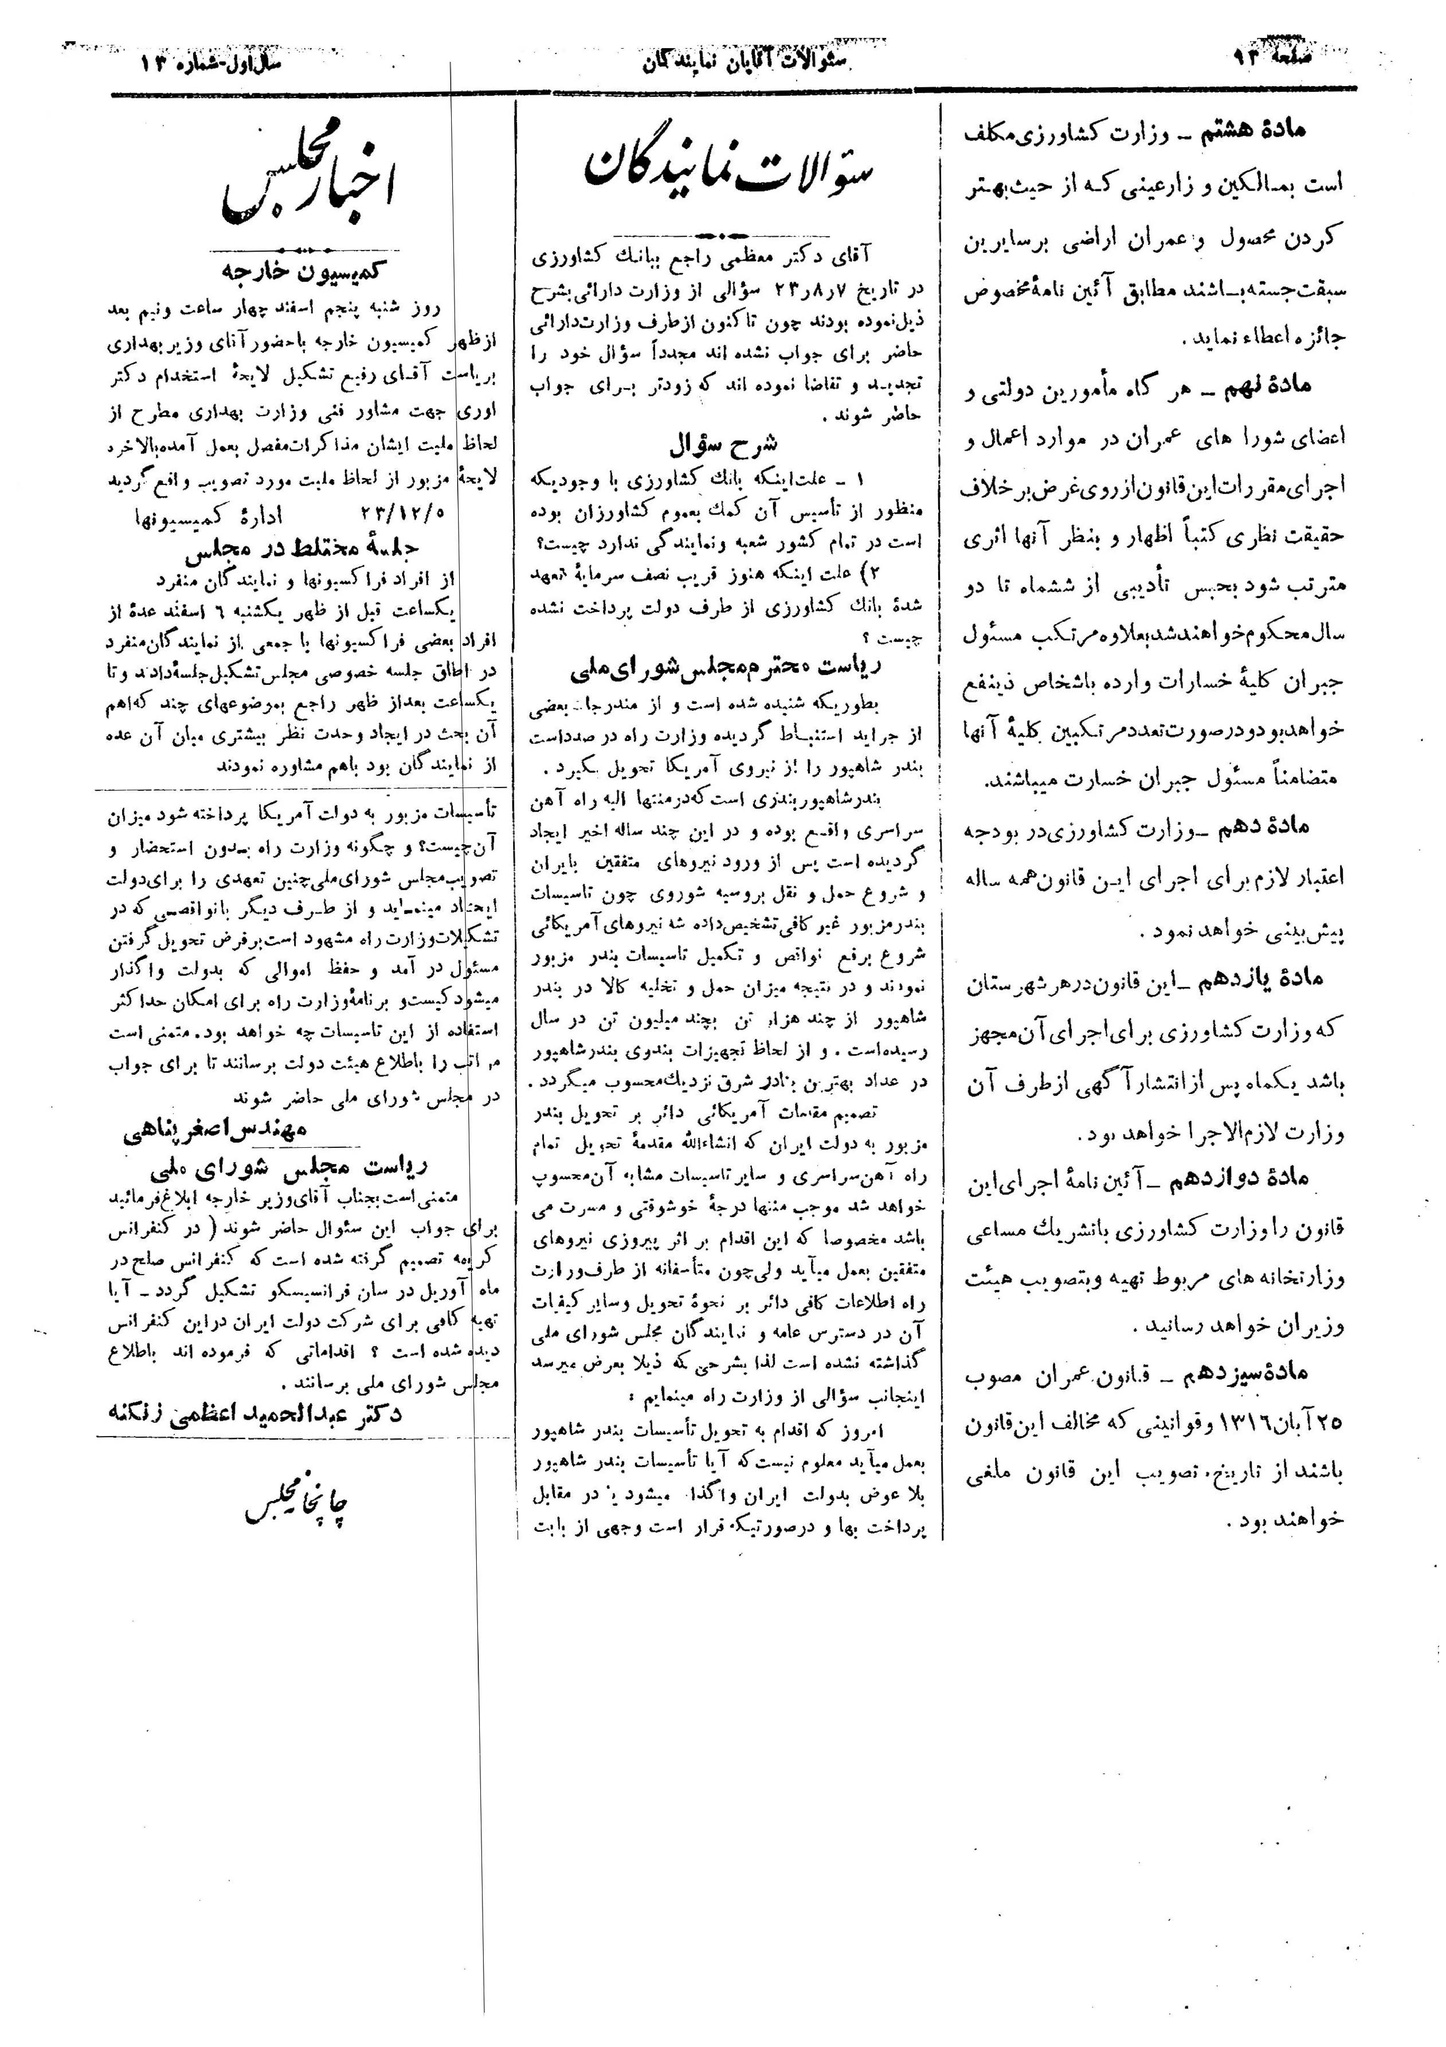 صفحه ۹۳
سئوالات آقایان نمایندگان
سال اول-شماره ۱۳
مادهٔ هشتم - وزارت کشاورزی مکلف
است بمالکین و زارعینی که از حیث بهتر
کردن محصول و عمران اراضی بر سایرین
سبقت جسته باشند مطابق آئین نامهٔ مخصوص
جائزه اعطاء نماید.
مادهٔ نهم - هر گاه مأمورین دولتی و
اعضای شورا های عمران در موارد اعمال و
اجرای مقررات این قانون از روی غرض بر خلاف
حقیقت نظری کتباً اظهار و بنظر آنها اثری
مترتب شود بحبس تأدیبی از ششماه تا دو
سال محکوم خواهند شد بعلاوه مرتکب مسئول
جبران کلیهٔ خسارات وارده باشخاص ذینفع
خواهد بود و در صورت تعدد مرتکبین کلیهٔ آنها
متضامناً مسئول جبران خسارت میباشند.
مادهٔ دهم - وزارت کشاورزی در بودجه
اعتبار لازم برای اجرای این قانون همه ساله
پیش بینی خواهد نمود.
مادهٔ یازدهم - این قانون در هر شهرستان
که وزارت کشاورزی برای اجرای آن مجهز
باشد یکماه پس از انتشار آگهی از طرف آن
وزارت لازم الاجرا خواهد بود.
مادهٔ دوازدهم - آئین نامهٔ اجرای این
قانون را وزارت کشاورزی با تشریك مساعی
وزارتخانه های مربوط تهیه و بتصویب هیئت
وزیران خواهد رسانید.
مادهٔ سیزدهم - قانون عمران مصوب
۲۵ آبان ۱۳۱۶ و قوانینی که مخالف این قانون
باشند از تاریخ تصویب این قانون ملغی
خواهند بود.
سؤالات نمایندگان
آقای دکتر معظمی راجع ببانك کشاورزی
در تاریخ ۷ر۸ر۲۳ سؤالی از وزارت دارائی بشرح
ذیل نموده بودند چون تا کنون از طرف وزارت دارائی
حاضر برای جواب نشده اند مجدداً سؤال خود را
تجدید و تقاضا نموده اند که زودتر برای جواب
حاضر شوند.
شرح سؤال
۱ - علت اینکه بانك کشاورزی با وجودیکه
منظور از تأسیس آن کمك بعموم کشاورزان بوده
است در تمام کشور شعبه و نمایندگی ندارد چیست؟
۲) علت اینکه هنوز قریب نصف سرمایهٔ تعهد
شدهٔ بانك کشاورزی از طرف دولت پرداخت نشده
چیست؟
ریاست محترم مجلس شورای ملی
بطوریکه شنیده شده است و از مندرجات بعضی
از جراید استنباط گردیده وزارت راه در صدد است
بندر شاهپور را از نیروی آمریکا تحویل بگیرد.
بندر شاهپور بندری است که در منتها الیه راه آهن
سراسری واقع بوده و در این چند ساله اخیر ایجاد
گردیده است پس از ورود نیروهای متفقین بایران
و شروع حمل و نقل بروسیه شوروی چون تاسیسات
بندر مزبور غیر کافی تشخیص داده شد نیروهای آمریکائی
شروع برفع نواقص و تکمیل تاسیسات بندر مزبور
نمودند و در نتیجه میزان حمل و تخلیه کالا در بندر
شاهپور از چند هزار تن بچند میلیون تن در سال
رسیده است. و از لحاظ تجهیزات بندری بندر شاهپور
در عداد بهترین بنادر شرق نزدیك محسوب میگردد.
تصمیم مقامات آمریکائی دائر بر تحویل بندر
مزبور به دولت ایران که انشاءالله مقدمهٔ تحویل تمام
راه آهن سراسری و سایر تاسیسات مشابه آن محسوب
خواهد شد موجب منتها درجهٔ خوشوقتی و مسرت می
باشد مخصوصا که این اقدام بر اثر پیروزی نیروهای
متفقین بعمل میآید ولی چون متأسفانه از طرف وزارت
راه اطلاعات کافی دائر بر نحوهٔ تحویل و سایر کیفیات
آن در دسترس عامه و نمایندگان مجلس شورای ملی
گذاشته نشده است لذا بشرحی که ذیلا بعرض میرسد
اینجانب سؤالی از وزارت راه مینمایم:
امروز که اقدام به تحویل تأسیسات بندر شاهپور
بعمل میآید معلوم نیست که آیا تأسیسات بندر شاهپور
بلا عوض بدولت ایران واگذار میشود یا در مقابل
پرداخت بها و در صورتیکه قرار است وجهی از بابت
اخبار مجلس
کمیسیون خارجه
روز شنبه پنجم اسفند چهار ساعت و نیم بعد
از ظهر کمیسیون خارجه با حضور آقای وزیر بهداری
بریاست آقای رفیع تشکیل لایحهٔ استخدام دکتر
اوری جهت مشاور فنی وزارت بهداری مطرح از
لحاظ ملیت ایشان مذاکرات مفصل بعمل آمده بالاخره
لایحهٔ مزبور از لحاظ ملیت مورد تصویب واقع گردید
۲۳/۱۲/۵ ادارهٔ کمیسیونها
جلسهٔ مختلط در مجلس
از افراد فراکسیونها و نمایندگان منفرد
یکساعت قبل از ظهر یکشنبه ۶ اسفند عدهٔ از
افراد بعضی فراکسیونها با جمعی از نمایندگان منفرد
در اطاق جلسه خصوصی مجلس تشکیل جلسه دادند و تا
یکساعت بعد از ظهر راجع بموضوعهای چند که اهم
آن بحث در ایجاد وحدت نظر بیشتری میان آن عده
از نمایندگان بود باهم مشاوره نمودند
تأسیسات مزبور به دولت آمریکا پرداخته شود میزان
آن چیست؟ و چگونه وزارت راه بدون استحضار و
تصویب مجلس شورای ملی چنین تعهدی را برای دولت
ایجاد مینماید و از طرف دیگر با نواقصی که در
تشکیلات وزارت راه مشهود است بر فرض تحویل گرفتن
مسئول در آمد و حفظ اموالی که بدولت واگذار
میشود کیست و برنامهٔ وزارت راه برای امکان حداکثر
استفاده از این تاسیسات چه خواهد بود. متمنی است
مراتب را باطلاع هیئت دولت برسانند تا برای جواب
در مجلس شورای ملی حاضر شوند
مهندس اصغر پناهی
ریاست مجلس شورای ملی
متمنی است بجناب آقای وزیر خارجه ابلاغ فرمائید
برای جواب این سئوال حاضر شوند ( در کنفرانس
کریمه تصمیم گرفته شده است که کنفرانس صلح در
ماه آوریل در سان فرانسیسکو تشکیل گردد - آیا
تهیه کافی برای شرکت دولت ایران در این کنفرانس
دیده شده است؟ اقداماتی که فرموده اند باطلاع
مجلس شورای ملی برسانند.
دکتر عبدالحمید اعظمی زنگنه
چاپخانه مجلس